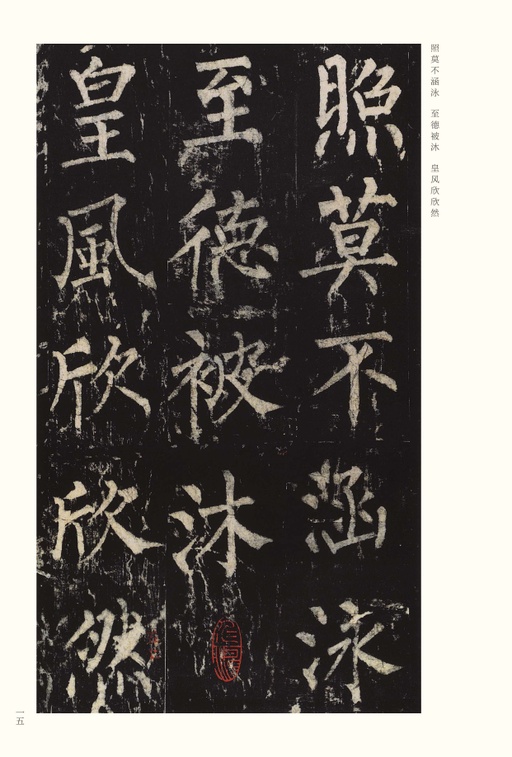 照莫不涵泳　至德被沐　皇风欣欣然
照莫不涵泳
至德被沐
皇風欣欣然
一五